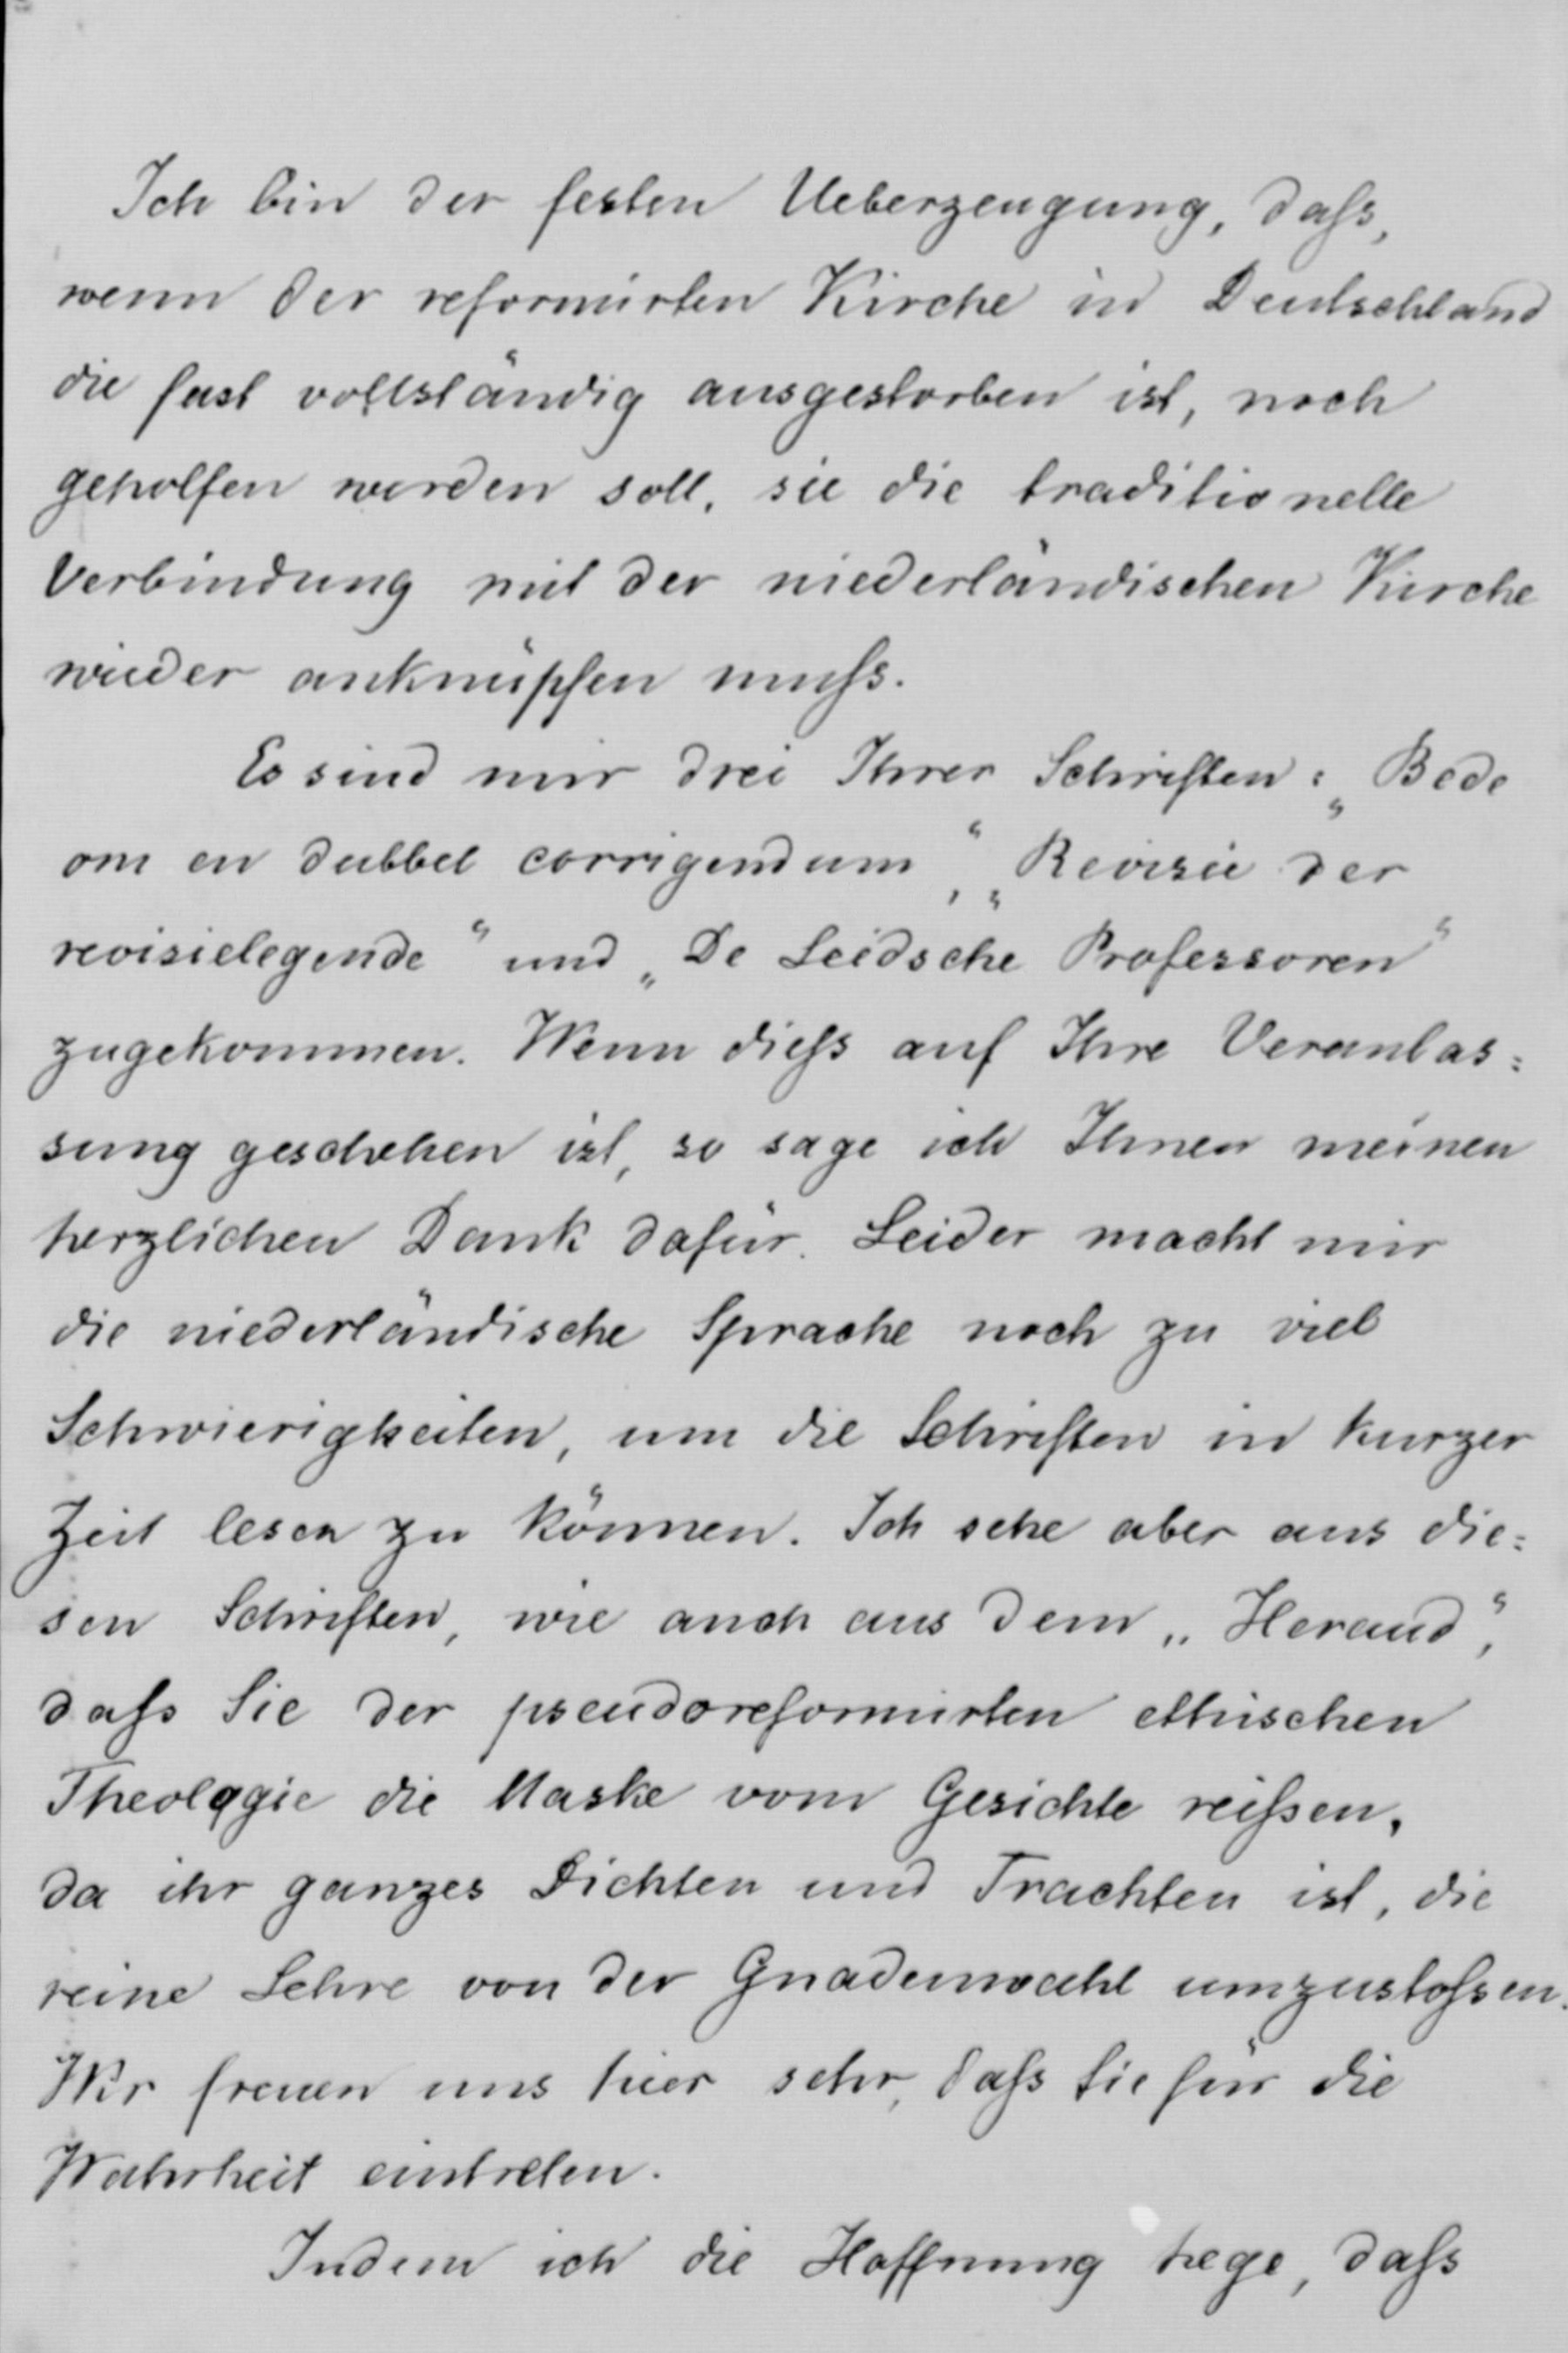 Ich bin der festen Ueberzeugung, daſs,
wenn der reformirten Kirche in Deutschland
die fast vollständig ausgestorben ist, noch
geholfen werden soll, sie die traditionelle
Verbindung mit der niederländischen Kirche
wieder anknüpfen muſs.
Es sind mir drei Ihrer Schriften: „Bede
om en dubbel corrigendum“, „Revisie der
revisielegende“ und „De Leidsche Professoren“
zugekommen. Wenn dieſs auf Ihre Veranlas=
sung geschehen ist, so sage ich Ihnen meinen
herzlichen Dank dafür. Leider macht mir
die niederländische Sprache noch zu viel
Schwierigkeiten, um die Schriften in kurzer
Zeit lesen zu können. Ich sehe aber aus die=
sen Schriften, wie auch aus dem „Heraud“,
daſs Sie der pseudoreformirten ethischen
Theologie die Maske vom Gesichte reiſsen,
da ihr ganzes Dichten und Trachten ist, die
reine Lehre von der Gnadenwahl umzustoſsen.
Wir freuen uns hier sehr, daſs Sie für die
Wahrheit eintreten.
Indem ich die Hoffnung hege, daſs